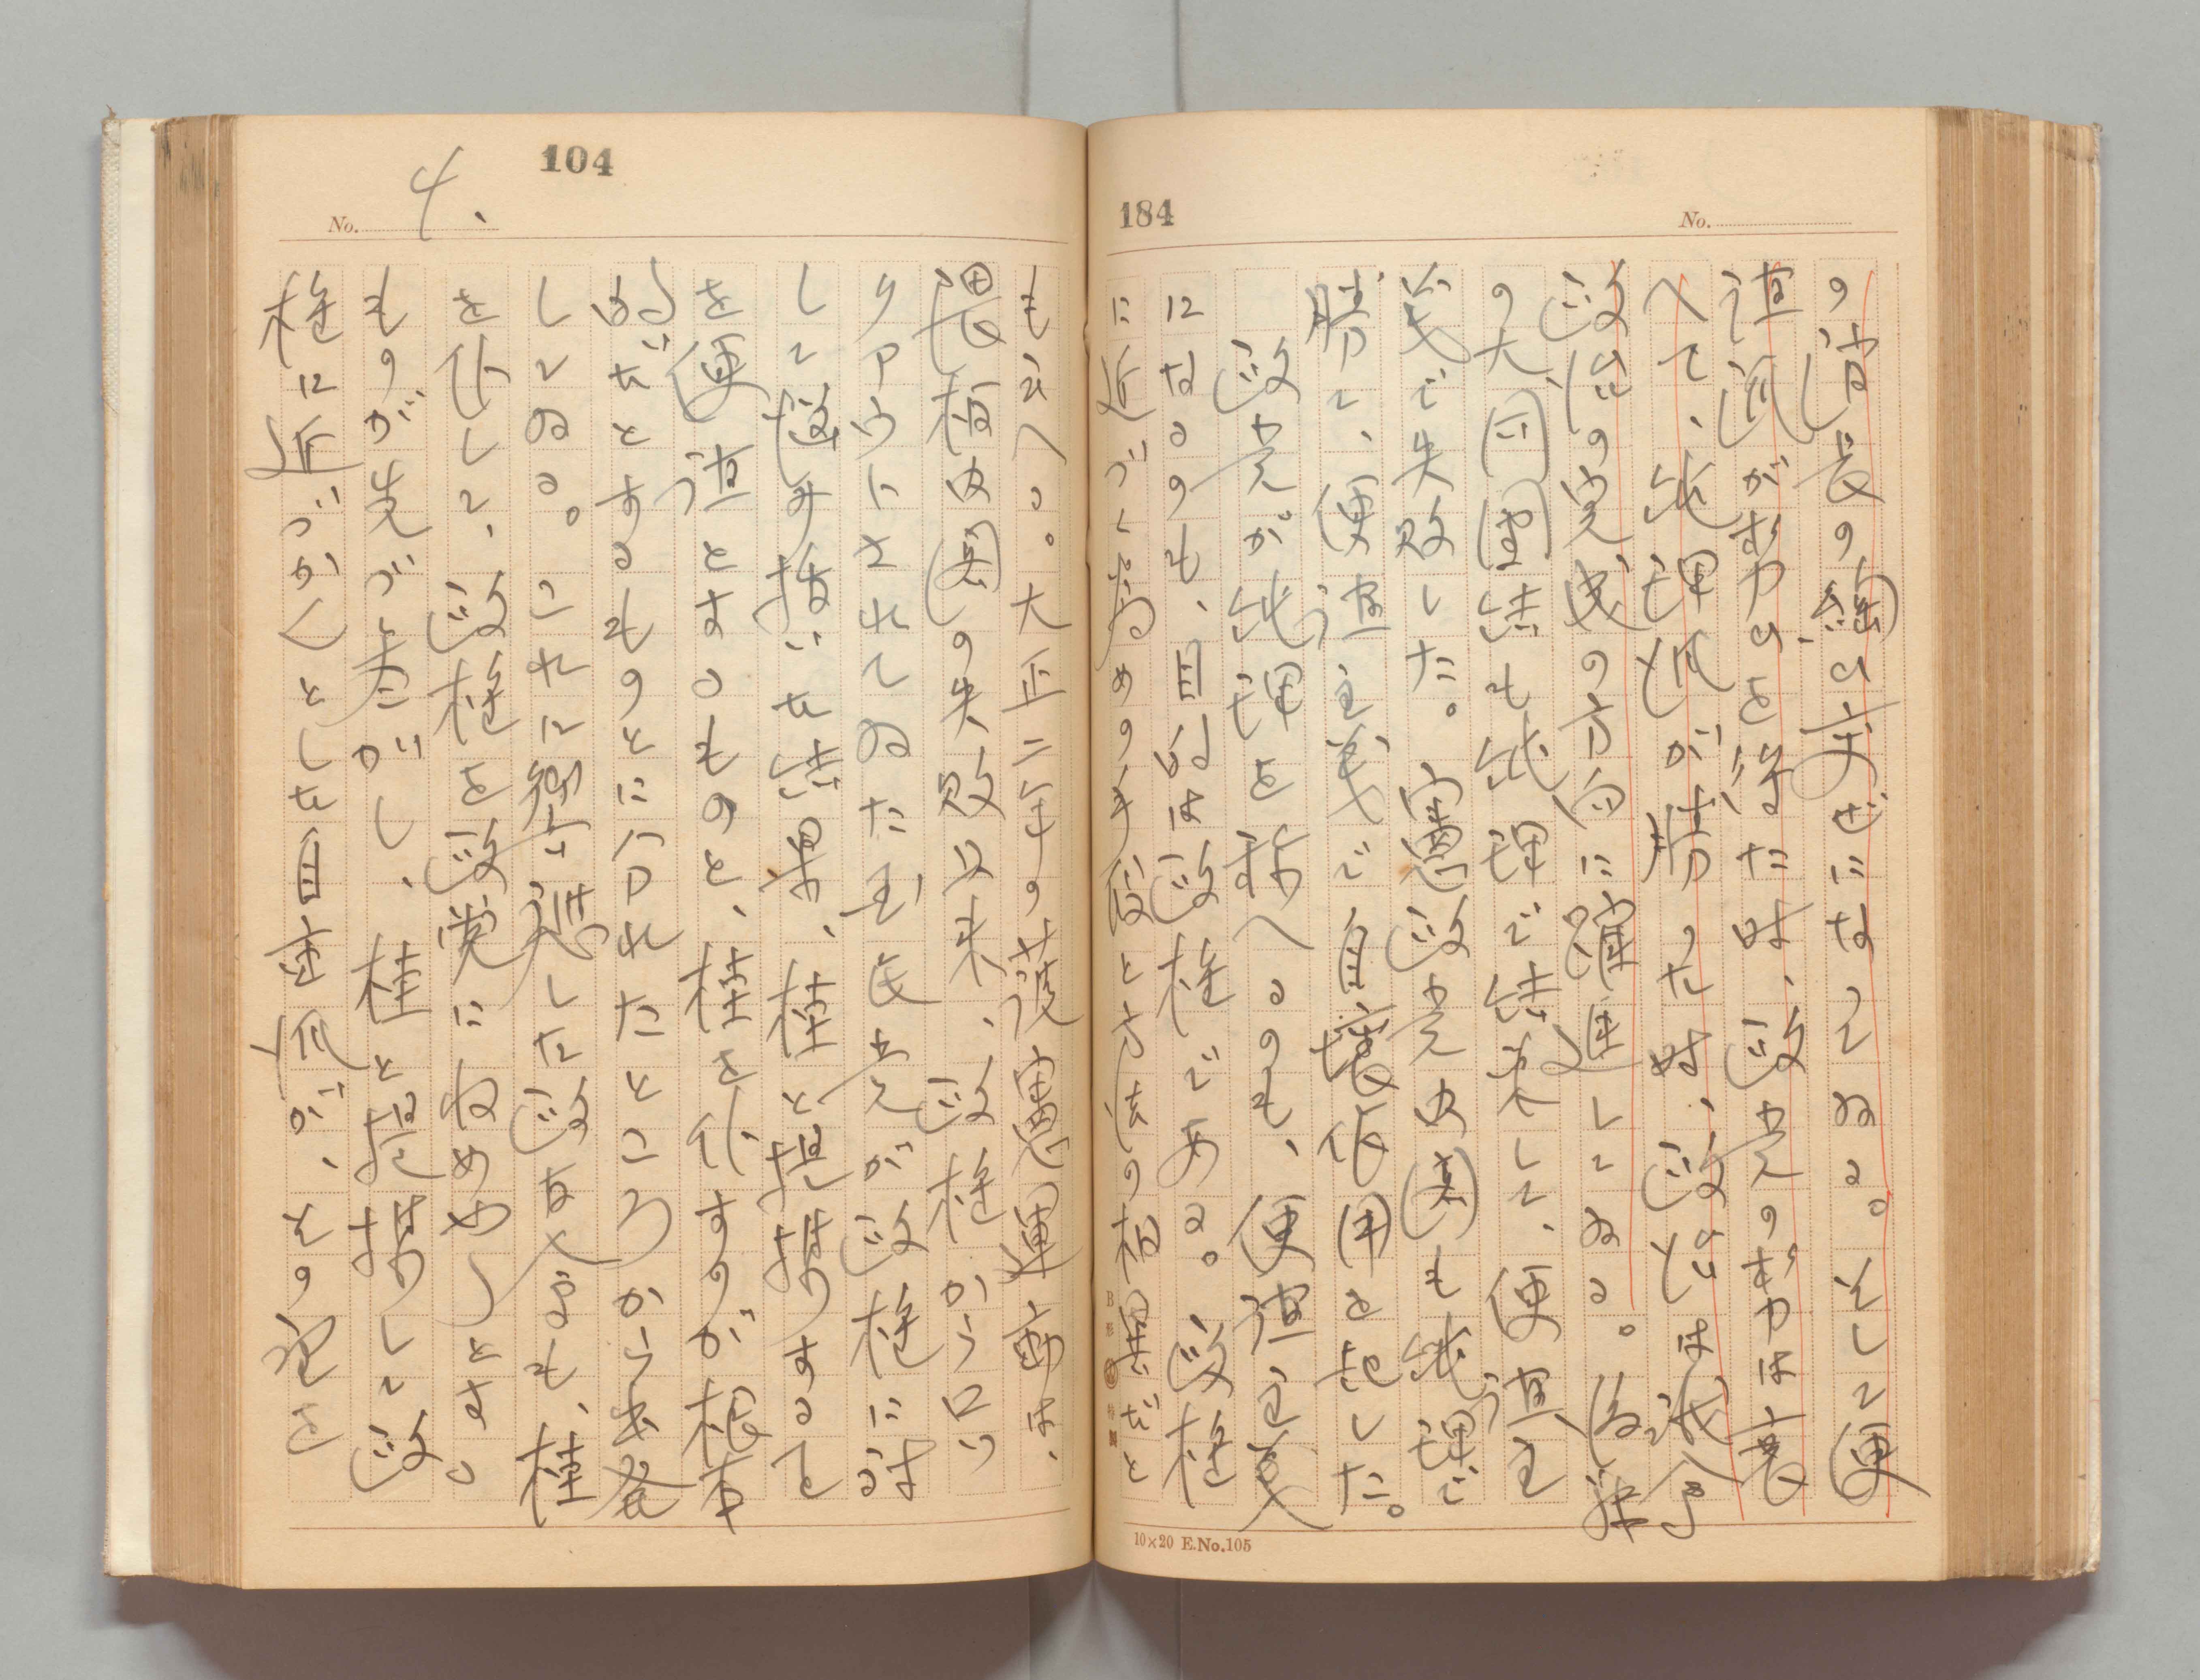 184
No.
の消長の繩ひ交ぜになってゐる。そして便
道派が勢力ひを得た時、政党の勢力は衰
へて、純理派が勝った時、政治は議会
政治の完成の方向に躍進してゐる。後藤
の大同團結も純理で結束して、便道主
義で失敗した。憲政党内閣も純理で
勝って、便道主義で自壊作用を起した。
政党が純理を称へるのも、便道主義
になるのも、目的は政権である。政権
に近づく為めの手段と方法の相異だと
10×20 E.No.105
104
No. 4.
も云へる。大正二年の護憲運動は、
隈板内閣の失敗以来、政権からロッ
クアウトされてゐた民党が政権に対
して悩み抜いた結果、桂と提携する
を便道とするものと、桂を倒すのが根本
的だとするものとに分れたところから出発
してゐる。これに対立した政友会も、桂
を倒して、政権を政党にをさめやうとす。
ものが先づ動かし、桂と提携して政
権に近づかんとした自重派が、その後を